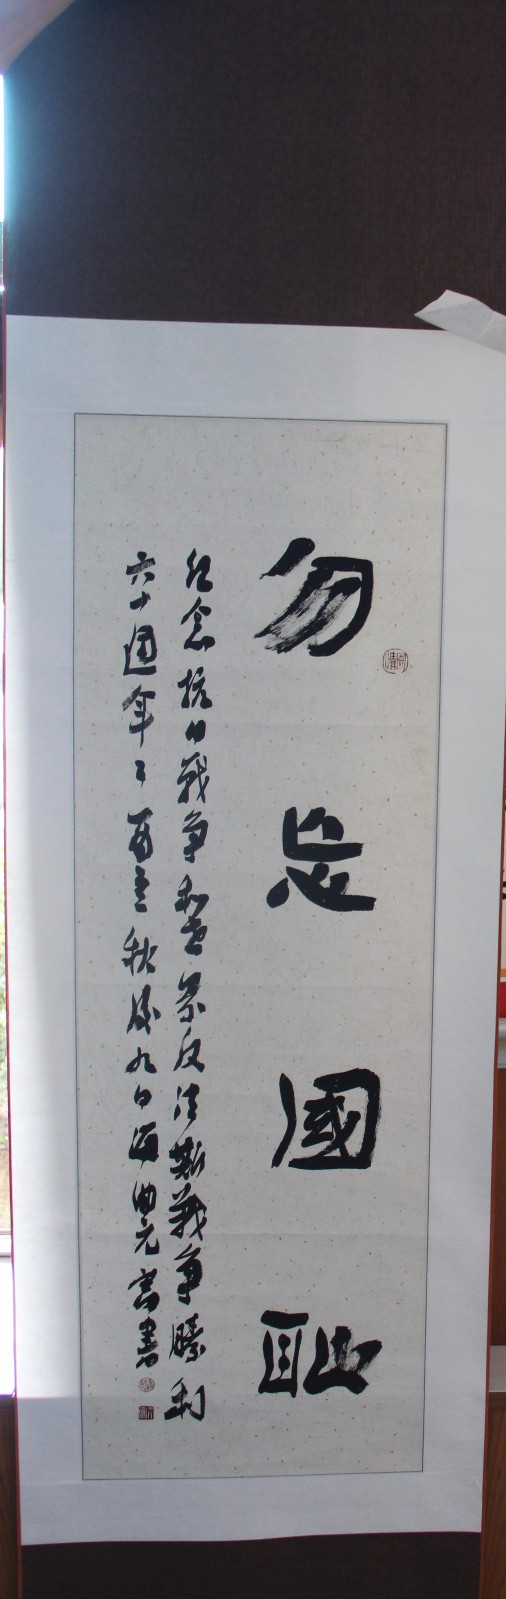 勿忘國恥
紀念抗日戰爭和世界反法斯戰爭勝利
六十週年乙酉之秋後九日
書